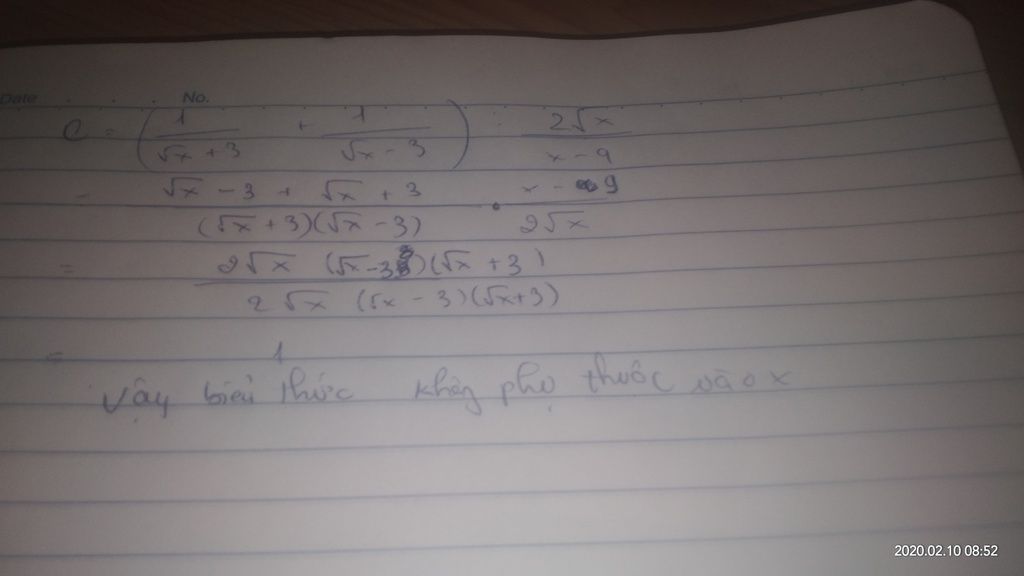 Date No.
C = (1/(√x + 3) + 1/(√x - 3)) : 2√x/(x - 9)
= (√x - 3 + √x + 3)/((√x + 3)(√x - 3)) . (x - 9)/(2√x)
= (2√x (√x - 3)(√x + 3))/(2√x (√x - 3)(√x + 3))
= 1
Vậy biểu thức không phụ thuộc vào x
2020.02.10 08:52